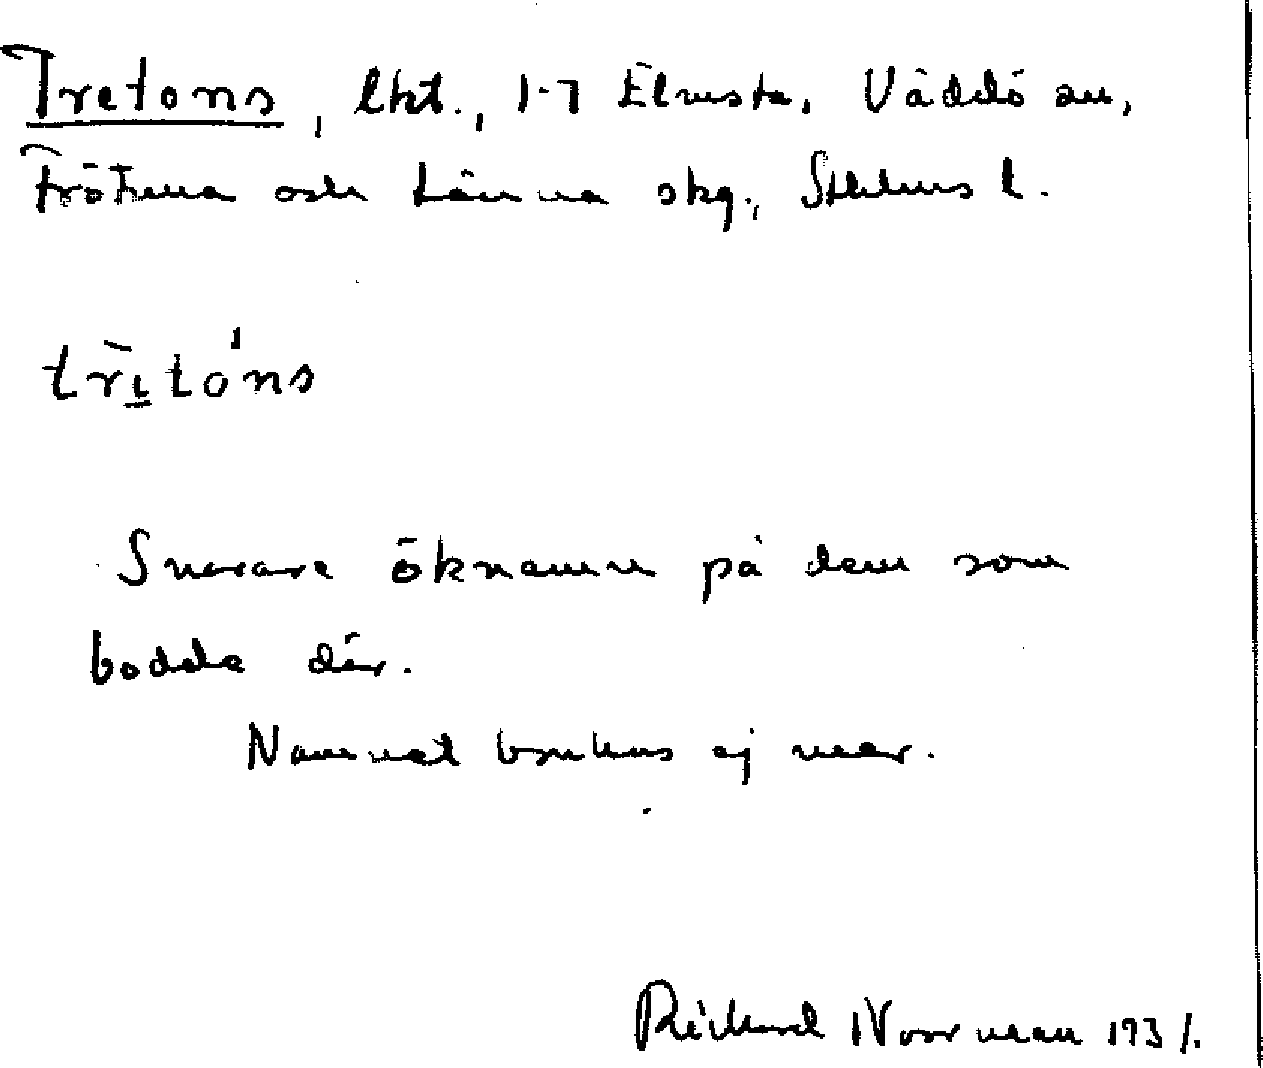 Tretons, lht., 1-7 Elmsta, Väddö sn,
Frötuna och Länna skg., Sthlms l.
trìtó'ns
Snarare öknamn på dem som
bodde där.
Namnet brukas ej mer.
Rickard Norrman 1931.